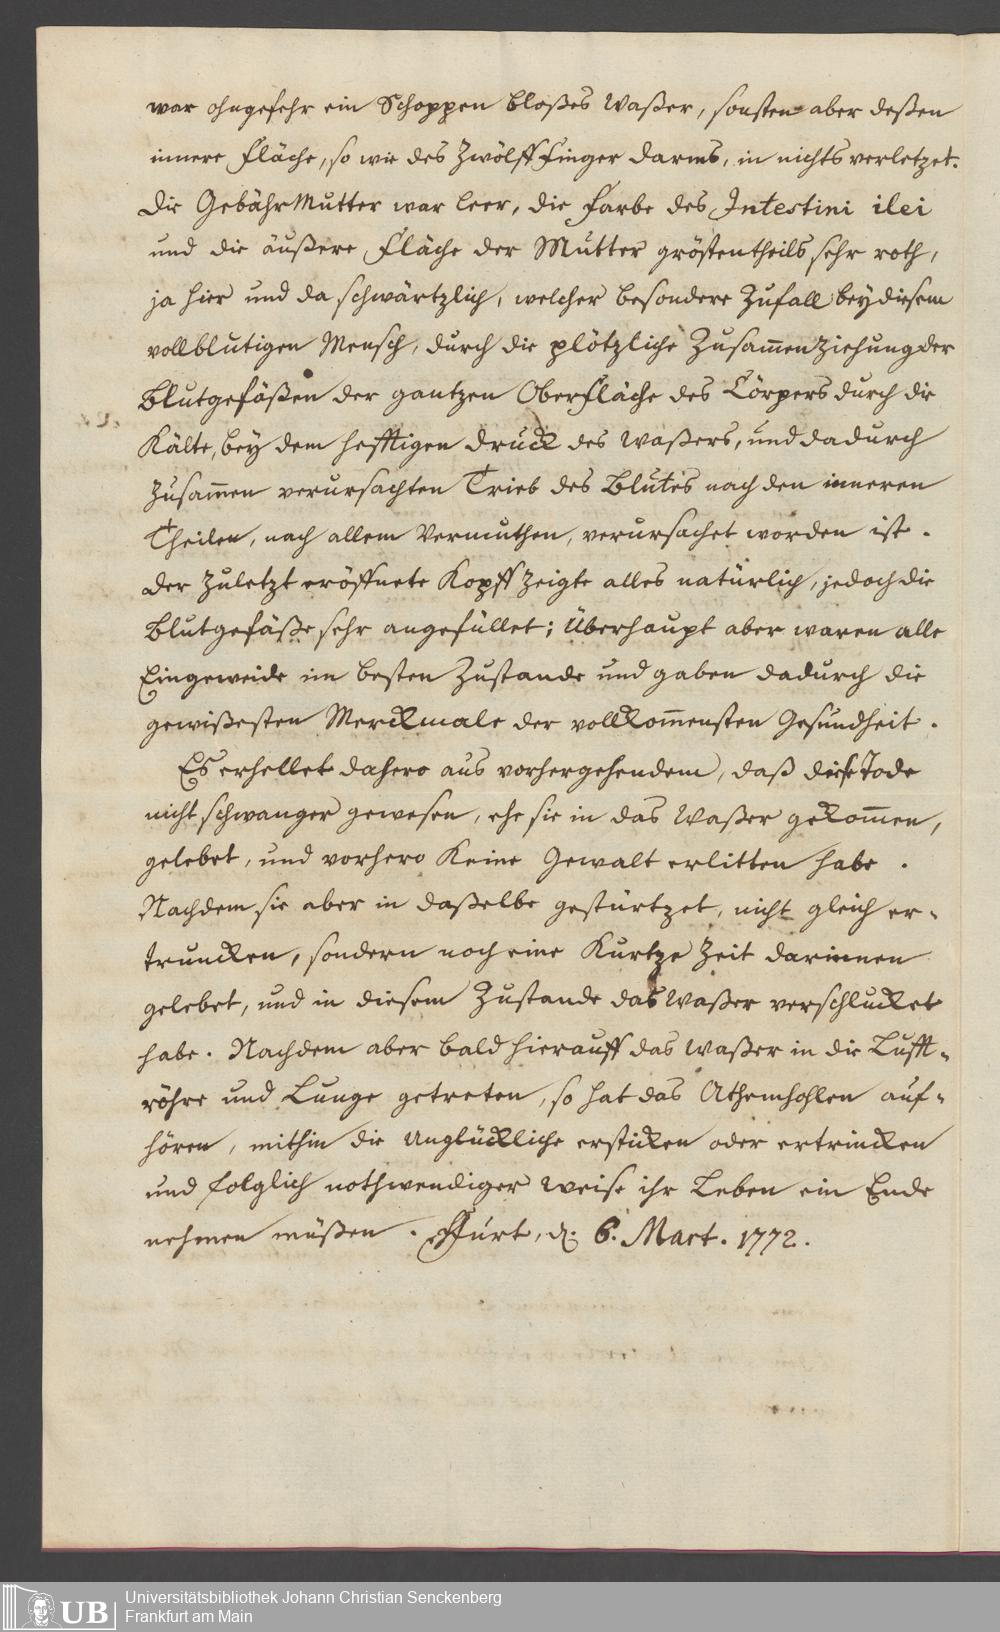 war ohngefehr ein Schoppen bloßes Waßer, sonsten aber deßen
innere Fläche, so wie des Zwölff Finger Darms, in nichts verletzet.
Die GebährMutter war leer, die Farbe des Intestini ilei
und die äußere Fläche der Mutter gröstentheils sehr roth,
ja hier und da schwärtzlich, welcher besondere Zufall bey diesem
vollblutigen Mensch, durch die plötzliche Zusam̄enziehung der
Blutgefäßen der gantzen Oberfläche des Cörpers durch die
Kälte, bey dem hefftigen Druck des Waßers, und dadurch
zusam̄en verursachten Trieb des Blutes nach den inneren
Theilen, nach allem Vermuthen, verursachet worden ist.
Der zuletzt eröffnete Kopff zeigte alles natürlich, jedoch die
Blutgefäße sehr angefüllet; Überhaupt aber waren alle
Eingeweide im besten Zustande und gaben dadurch die
gewißesten Merckmale der vollkom̄ensten Gesundheit.
Es erhellet dahero aus vorhergehendem, daß diese Tode
nicht schwanger gewesen, ehe sie in das Waßer gekom̄en,
gelebet, und vorhero keine Gewalt erlitten habe.
Nachdem sie aber in daßelbe gestürtzet, nicht gleich er-
truncken, sondern noch eine kurtze Zeit darinnen
gelebet, und in diesem Zustande das Waßer verschlucket
habe. Nachdem aber bald hierauff das Waßer in die Lufft-
röhre und Lunge getreten, so hat das Athemhohlen auf-
hören, mithin die Unglückliche ersticken oder ertrincken
und folglich nothwendiger Weise ihr Leben ein Ende
nehmen müßen. Ffurt, d. 6. Mart. 1772.
UB
Universitätsbibliothek Johann Christian Senckenberg
Frankfurt am Main